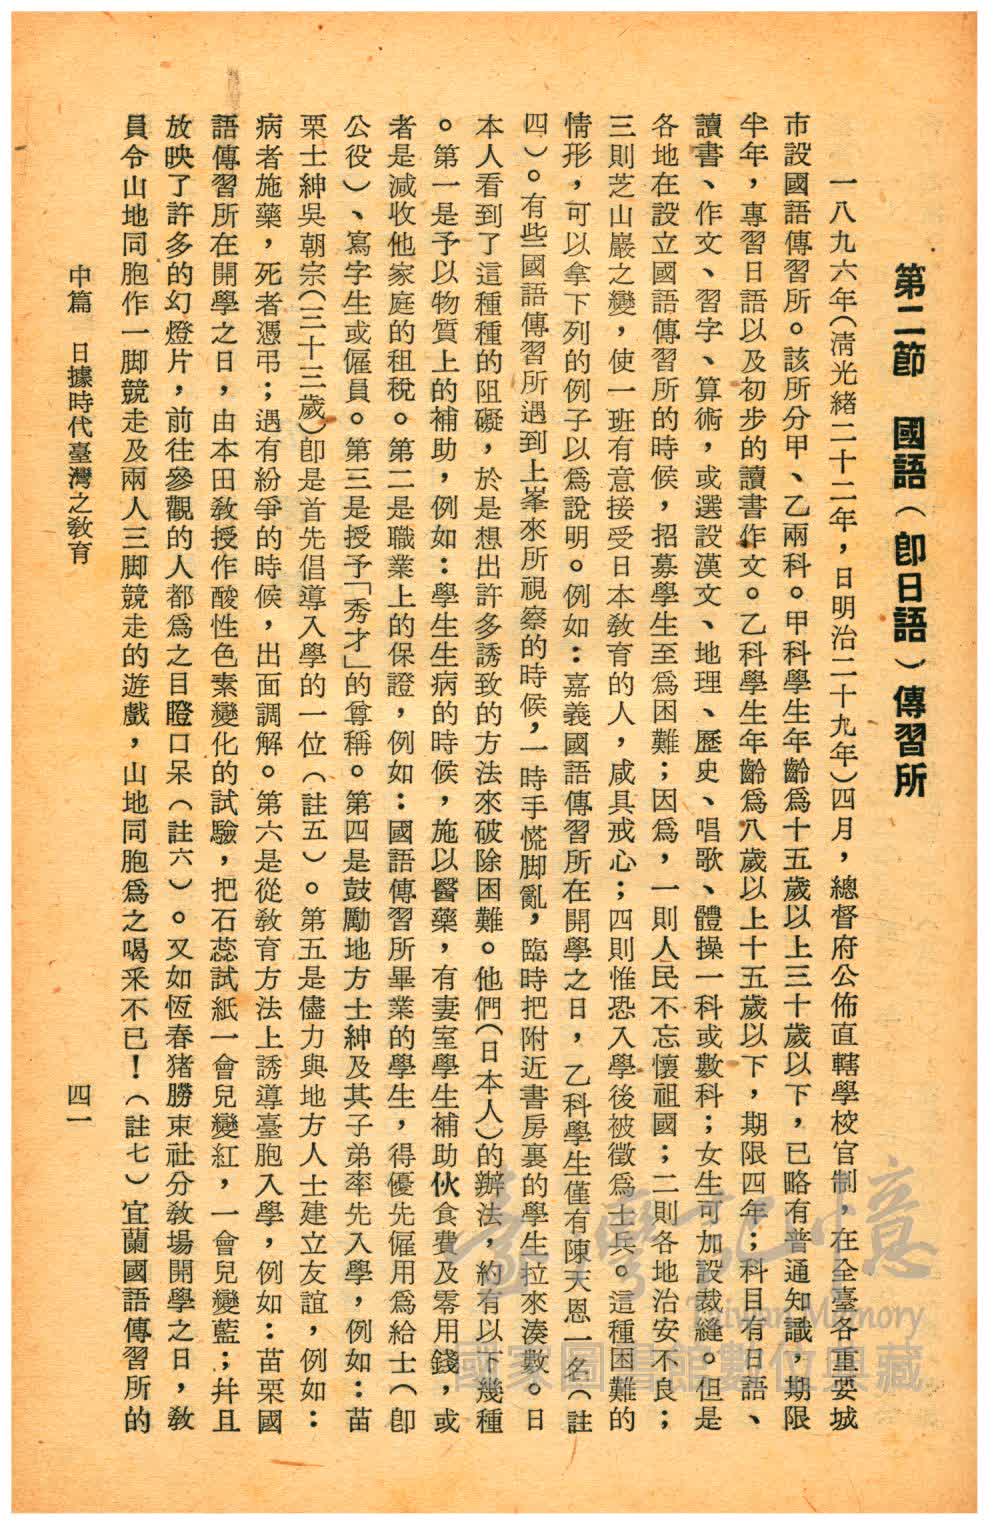 第二節　國語（卽日語）傳習所
一八九六年（淸光緖二十二年，日明治二十九年）四月，總督府公佈直轄學校官制，在全臺各重要城
市設國語傳習所。該所分甲、乙兩科。甲科學生年齡爲十五歲以上三十歲以下，已略有普通知識，期限
半年，專習日語以及初步的讀書作文。乙科學生年齡爲八歲以上十五歲以下，期限四年；科目有日語、
讀書、作文、習字、算術，或選設漢文、地理、歷史、唱歌、體操一科或數科；女生可加設裁縫。但是
各地在設立國語傳習所的時候，招募學生至爲困難；因爲，一則人民不忘懷祖國；二則各地治安不良；
三則芝山巖之變，使一班有意接受日本敎育的人，咸具戒心；四則惟恐入學後被徵爲士兵。這種困難的
情形，可以拿下列的例子以爲說明。例如：嘉義國語傳習所在開學之日，乙科學生僅有陳天恩一名（註
四）。有些國語傳習所遇到上峯來所視察的時候，一時手慌脚亂，臨時把附近書房裏的學生拉來湊數。日
本人看到了這種種的阻礙，於是想出許多誘致的方法來破除困難。他們（日本人）的辦法，約有以下幾種
。第一是予以物質上的補助，例如：學生生病的時候，施以醫藥，有妻室學生補助伙食費及零用錢，或
者是減收他家庭的租稅。第二是職業上的保證，例如：國語傳習所畢業的學生，得優先僱用爲給士（卽
公役）、寫字生或僱員。第三是授予「秀才」的尊稱。第四是鼓勵地方士紳及其子弟率先入學，例如：苗
栗士紳吳朝宗（三十三歲）卽是首先倡導入學的一位（註五）。第五是儘力與地方人士建立友誼，例如：
病者施藥，死者憑弔；遇有紛爭的時候，出面調解。第六是從敎育方法上誘導臺胞入學，例如：苗栗國
語傳習所在開學之日，由本田敎授作酸性色素變化的試驗，把石蕊試紙一會兒變紅，一會兒變藍；幷且
放映了許多的幻燈片，前往參觀的人都爲之目瞪口呆（註六）。又如恆春猪朥束社分敎場開學之日，敎
員令山地同胞作一脚競走及兩人三脚競走的遊戲，山地同胞爲之喝釆不已！（註七）宜蘭國語傳習所的
中篇　日據時代臺灣之敎育
四一
臺灣記憶
Taiwan Memory
國家圖書館數位典藏